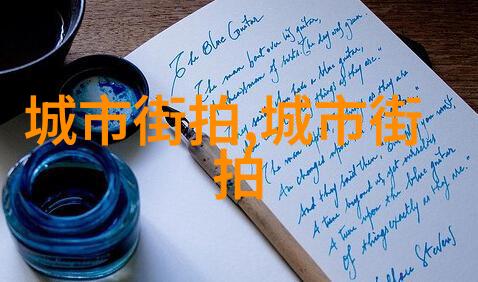 The Blue Guitar
The man bent over his guitar,
A shearsman of sorts. The day was green.
They said, "You have a blue guitar,
You do not play things as they are."
The man replied, "Things as they are
Are changed upon the blue guitar."
And they said then, "But play, you must,
A tune beyond us, yet ourselves,
A tune upon the blue guitar
Of things exactly as they are."
Wallace Stevens
城市街拍,城市街
拍